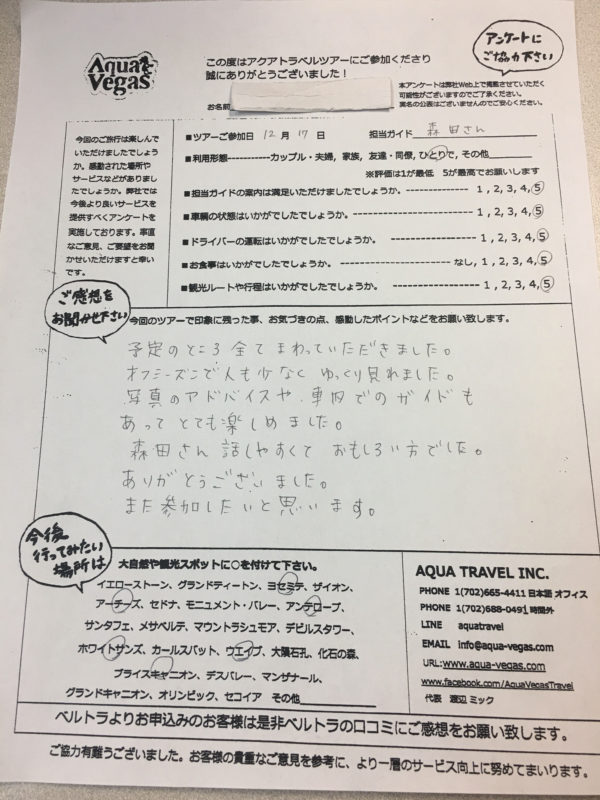 Aqua Vegas
この度はアクアトラベルツアーにご参加くださり
誠にありがとうございました！
アンケートに
ご協力下さい
本アンケートは弊社Web上で掲載させていただく
可能性がございますのでご了承ください。
実名の公表はございませんのでご安心ください。
お名前
今回のご旅行は楽しんで
いただけましたでしょう
か。感動された場所や
サービスなどがありまし
たでしょうか。弊社では
今後より良いサービスを
提供すべくアンケートを
実施しております。率直
なご意見、ご要望をお聞
かせいただけますと幸い
です。
■ツアーご参加日 12 月 17 日 担当ガイド 森田さん
■利用形態-----------カップル・夫婦, 家族, 友達・同僚, ひとりで, その他
※評価は1が最低 5が最高でお願いします
■担当ガイドの案内は満足いただけましたでしょうか。--------------- 1 , 2, 3, 4, 5
■車輌の状態はいかがでしたでしょうか。-------------------- 1 , 2, 3, 4, 5
■ドライバーの運転はいかがでしたでしょうか。----------------- 1 , 2, 3, 4, 5
■お食事はいかがでしたでしょうか。-------------------- なし, 1 , 2, 3, 4, 5
■観光ルートや行程はいかがでしたでしょうか。----------------- 1 , 2, 3, 4, 5
ご感想を
お聞かせ下さい
今回のツアーで印象に残った事、お気づきの点、感動したポイントなどをお願い致します。
予定のところ全てまわっていただきました。
オフシーズンで人も少なくゆっくり見れました。
写真のアドバイスや、車内でのガイドも
あってとても楽しめました。
森田さん話しやすくておもしろい方でした。
ありがとうございました。
また参加したいと思います。
今後
行ってみたい
場所は
大自然や観光スポットに○を付けて下さい。
イエローストーン、グランドティートン、ヨセミテ、ザイオン、
アーチーズ、セドナ、モニュメント・バレー、アンテロープ、
サンタフェ、メサベルデ、マウントラシュモア、デビルスタワー、
ホワイトサンズ、カールスバット、ウエイブ、大隕石孔、化石の森、
ブライスキャニオン、デスバレー、マンザナール、
グランドキャニオン、オリンピック、セコイア その他
AQUA TRAVEL INC.
PHONE 1(702)665-4411 日本語 オフィス
PHONE 1(702)688-0491 時間外
LINE aquatravel
EMAIL info@aqua-vegas.com
URL:www.aqua-vegas.com
www.facebook.com/AquaVegasTravel
代表 渡辺 ミック
ベルトラよりお申込みのお客様は是非ベルトラの口コミにご感想をお願い致します。
ご協力有難うございました。お客様の貴重なご意見を参考に、より一層のサービス向上に努めてまいります。